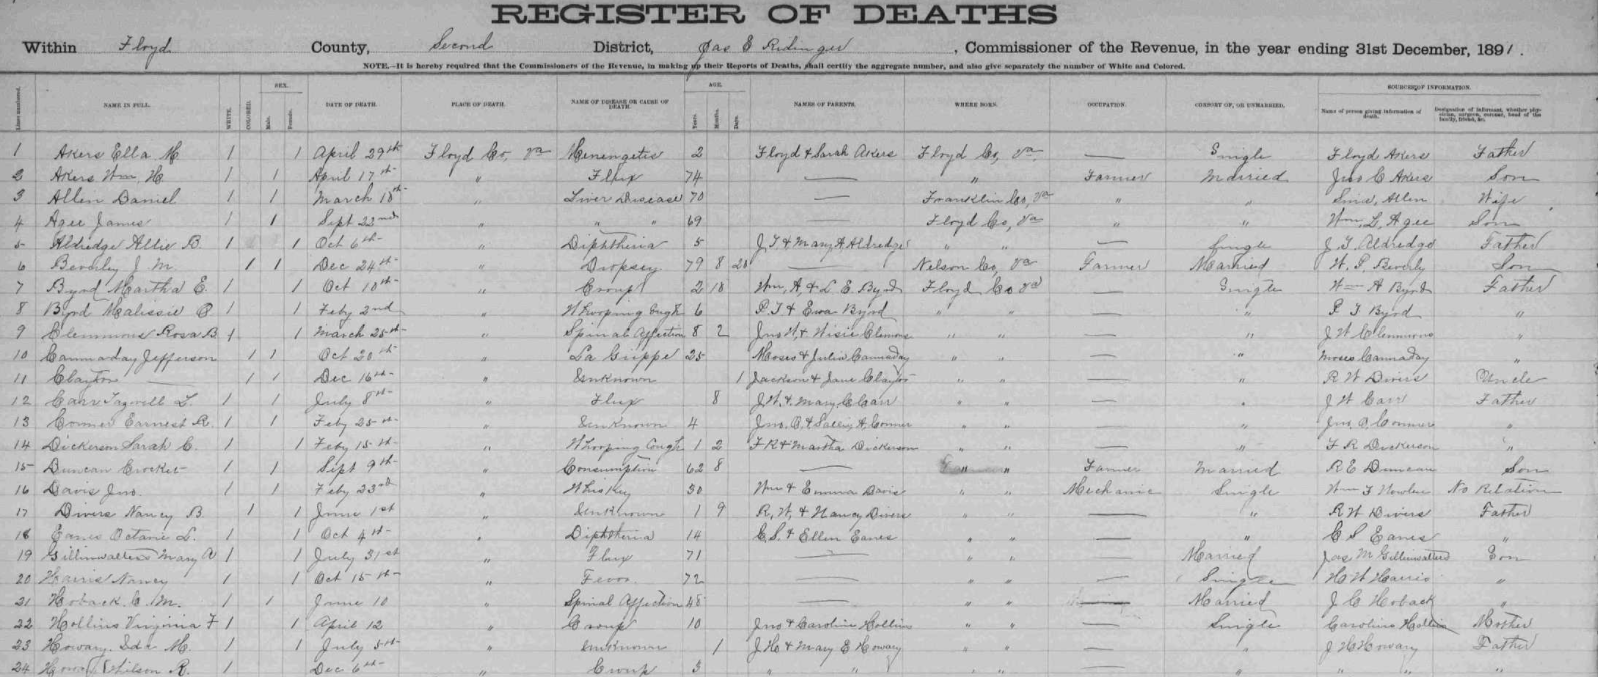 REGISTER OF DEATHS
Within Floyd County, Second District, Jas E Ridinger, Commissioner of the Revenue, in the year ending 31st December, 1891.
NOTE.—It is hereby required that the Commissioners of the Revenue, in making up their Reports of Deaths, shall certify the aggregate number, and also give separately the number of White and Colored.
SEX. AGE. SOURCES OF INFORMATION.
NAME IN FULL. WHITE. COLORED. Male. Female. DATE OF DEATH. PLACE OF DEATH. NAME OF DISEASE OR CAUSE OF DEATH. Years. Months. Days. NAMES OF PARENTS. WHERE BORN. OCCUPATION. CONSORT OF, OR UNMARRIED. Name of person giving information of death. Designation of informant, whether physician, surgeon, coroner, head of the family, friend, &c.
1 Akers Ella M 1 1 April 29th Floyd Co, Va Menengetis 2 Floyd & Sarah Akers Floyd Co, Va — Single Floyd Akers Father
2 Akers Wm H 1 1 April 17th " Flux 74 — " Farmer Married Jno C Akers Son
3 Allen Daniel 1 1 March 18th " Liver Disease 70 — Franklin Co, Va " " Allen Wife
4 Agee James 1 1 Sept 22nd " " " 69 Floyd Co, Va " " Wm L. Agee Son
5 Aldredge Allie B 1 1 Oct 6th " Diphtheria 5 J. T & Mary A Aldredge " " — Single J. T. Aldredge Father
6 Beverly J. M. 1 1 Dec 24th " Dropsey 79 8 — Nelson Co, Va Farmer Married W. P. Beverly Son
7 Byrd Martha E 1 1 Oct 10th " Croup 2 18 Wm, A & L E Byrd Floyd Co Va — Single Wm A Byrd Father
8 Byrd Malissie P 1 1 Feby 2nd " Whooping Cough 6 P. T & Byrd " " — " P T Byrd "
9 Clemmons Rosa B 1 1 March 25th " Spinal Affection 8 2 Jno W, & Clemons " " — " J W Clemmons "
10 Cannaday Jefferson 1 1 Oct 20th " La Grippe 25 Moses & Julia Cannaday " " — " Moses Cannaday "
11 Clayton — 1 1 Dec 16th " Unknown 1 Jackson & Jane Clayton " " — " R W Divers Uncle
12 Carr Tazwell L. 1 1 July 8th " Flux 8 J. W. & Mary C Carr " " — " J W Carr Father
13 Conner Earnest R. 1 1 Feby 25th " Unknown 4 Jno. & Sally A. Conner — " Jno. Conner "
14 Dickerson Sarah C. 1 1 Feby 15th " Whooping Cough 1 2 F R & Martha Dickerson " " — " F R Dickerson "
15 Duncan Crocket 1 1 Sept 9th " Consumption 62 8 — " " Farmer Married R E Duncan Son
16 Davis Jno. 1 1 Feby 23rd " Whiskey 50 Wm & Emma Davis " " Mechanic Single Wm F Nowlin No Relation
17 Divers Nancy B 1 1 June 1st " Unknown 1 9 R, W, & Nancy Divers " " — " R W Divers Father
18 Eanes Octavie L. 1 1 Oct 4th " Diphtheria 14 C. S. & Ellen Eanes " " — " C S Eanes "
19 Gillinwaters Mary 1 1 July 31st " Flux 71 — " " — Married Jas M Gillinwaters Son
20 Harris Nancy 1 1 Oct 15th " 72 — " " — Single H W Harris "
21 Hoback C. M. 1 1 June 10 " Spinal Affection 48 — " " — Married J C Hoback "
22 Hollins Virginia F 1 1 April 12 " Croup 10 Jno & Caroline Hollins " " — Single Caroline Hollins Mother
23 Howary Ida M 1 1 July 5th " Unknown 1 J H & Mary E Howary " " — " J H Howary Father
24 Wilson R. 1 Dec 6th " Croup 3 " " " " — " " " "